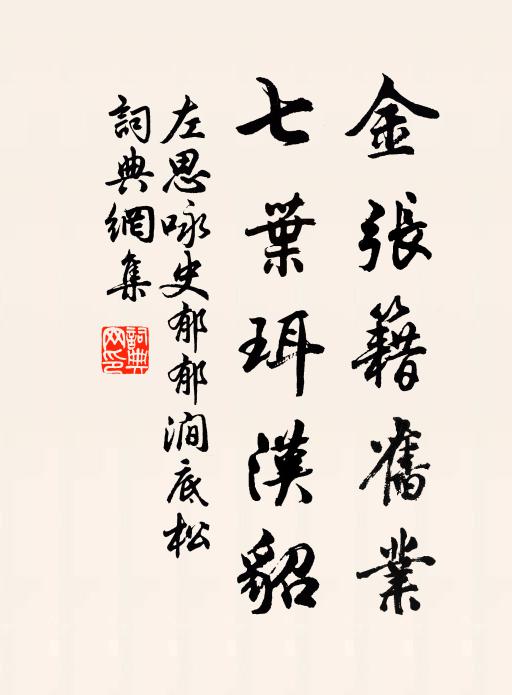 金張籍舊業
七葉珥漢貂
左思咏史郁郁澗底松
詞典網集
詞典網印